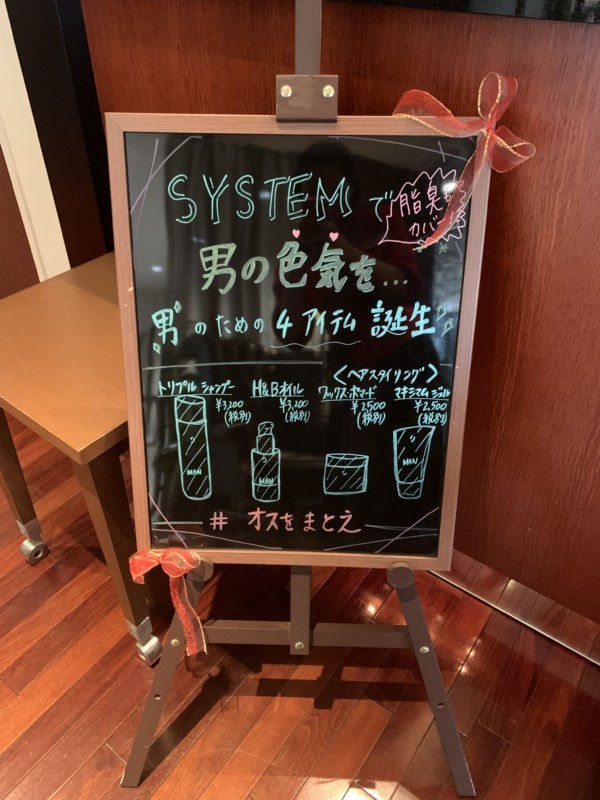 SYSTEMで
脂臭も
カバー
男の色気を...
男のための4アイテム誕生
<ヘアスタイリング>
トリプルシャンプー
¥3,200
(税別)
H&Bオイル
¥3,200
(税別)
ワックス・ポマード
¥2,500
(税別)
マキシマムジェル
¥2,500
(税別)
MAN
MAN
MAN
# オスをまとえ